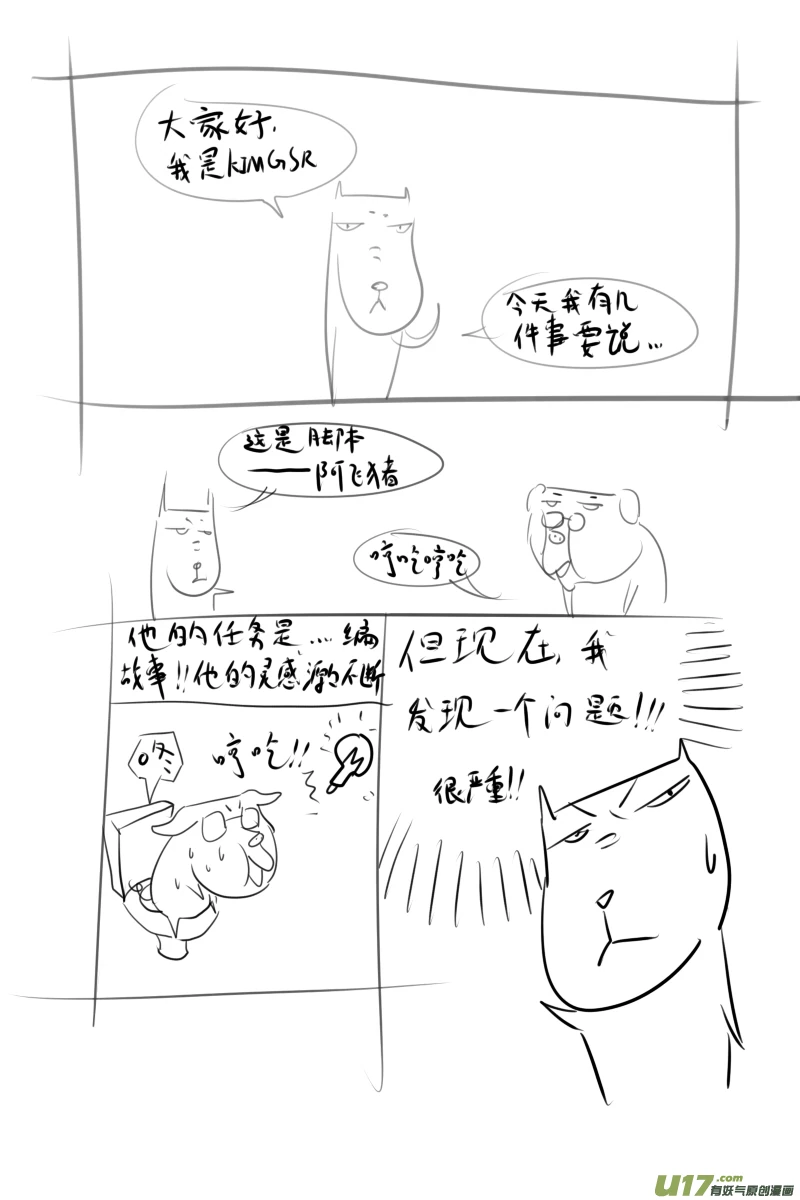 大家好,
我是KIMGSR
今天我有几
件事要说...
这是脚本
——阿飞猪
哼吃哼吃
他的任务是....编
故事!!他的灵感源源不断
咚
哼吃!!
但现在,我
发现一个问题!!!
很严重!!
U17.com
有妖气原创漫画